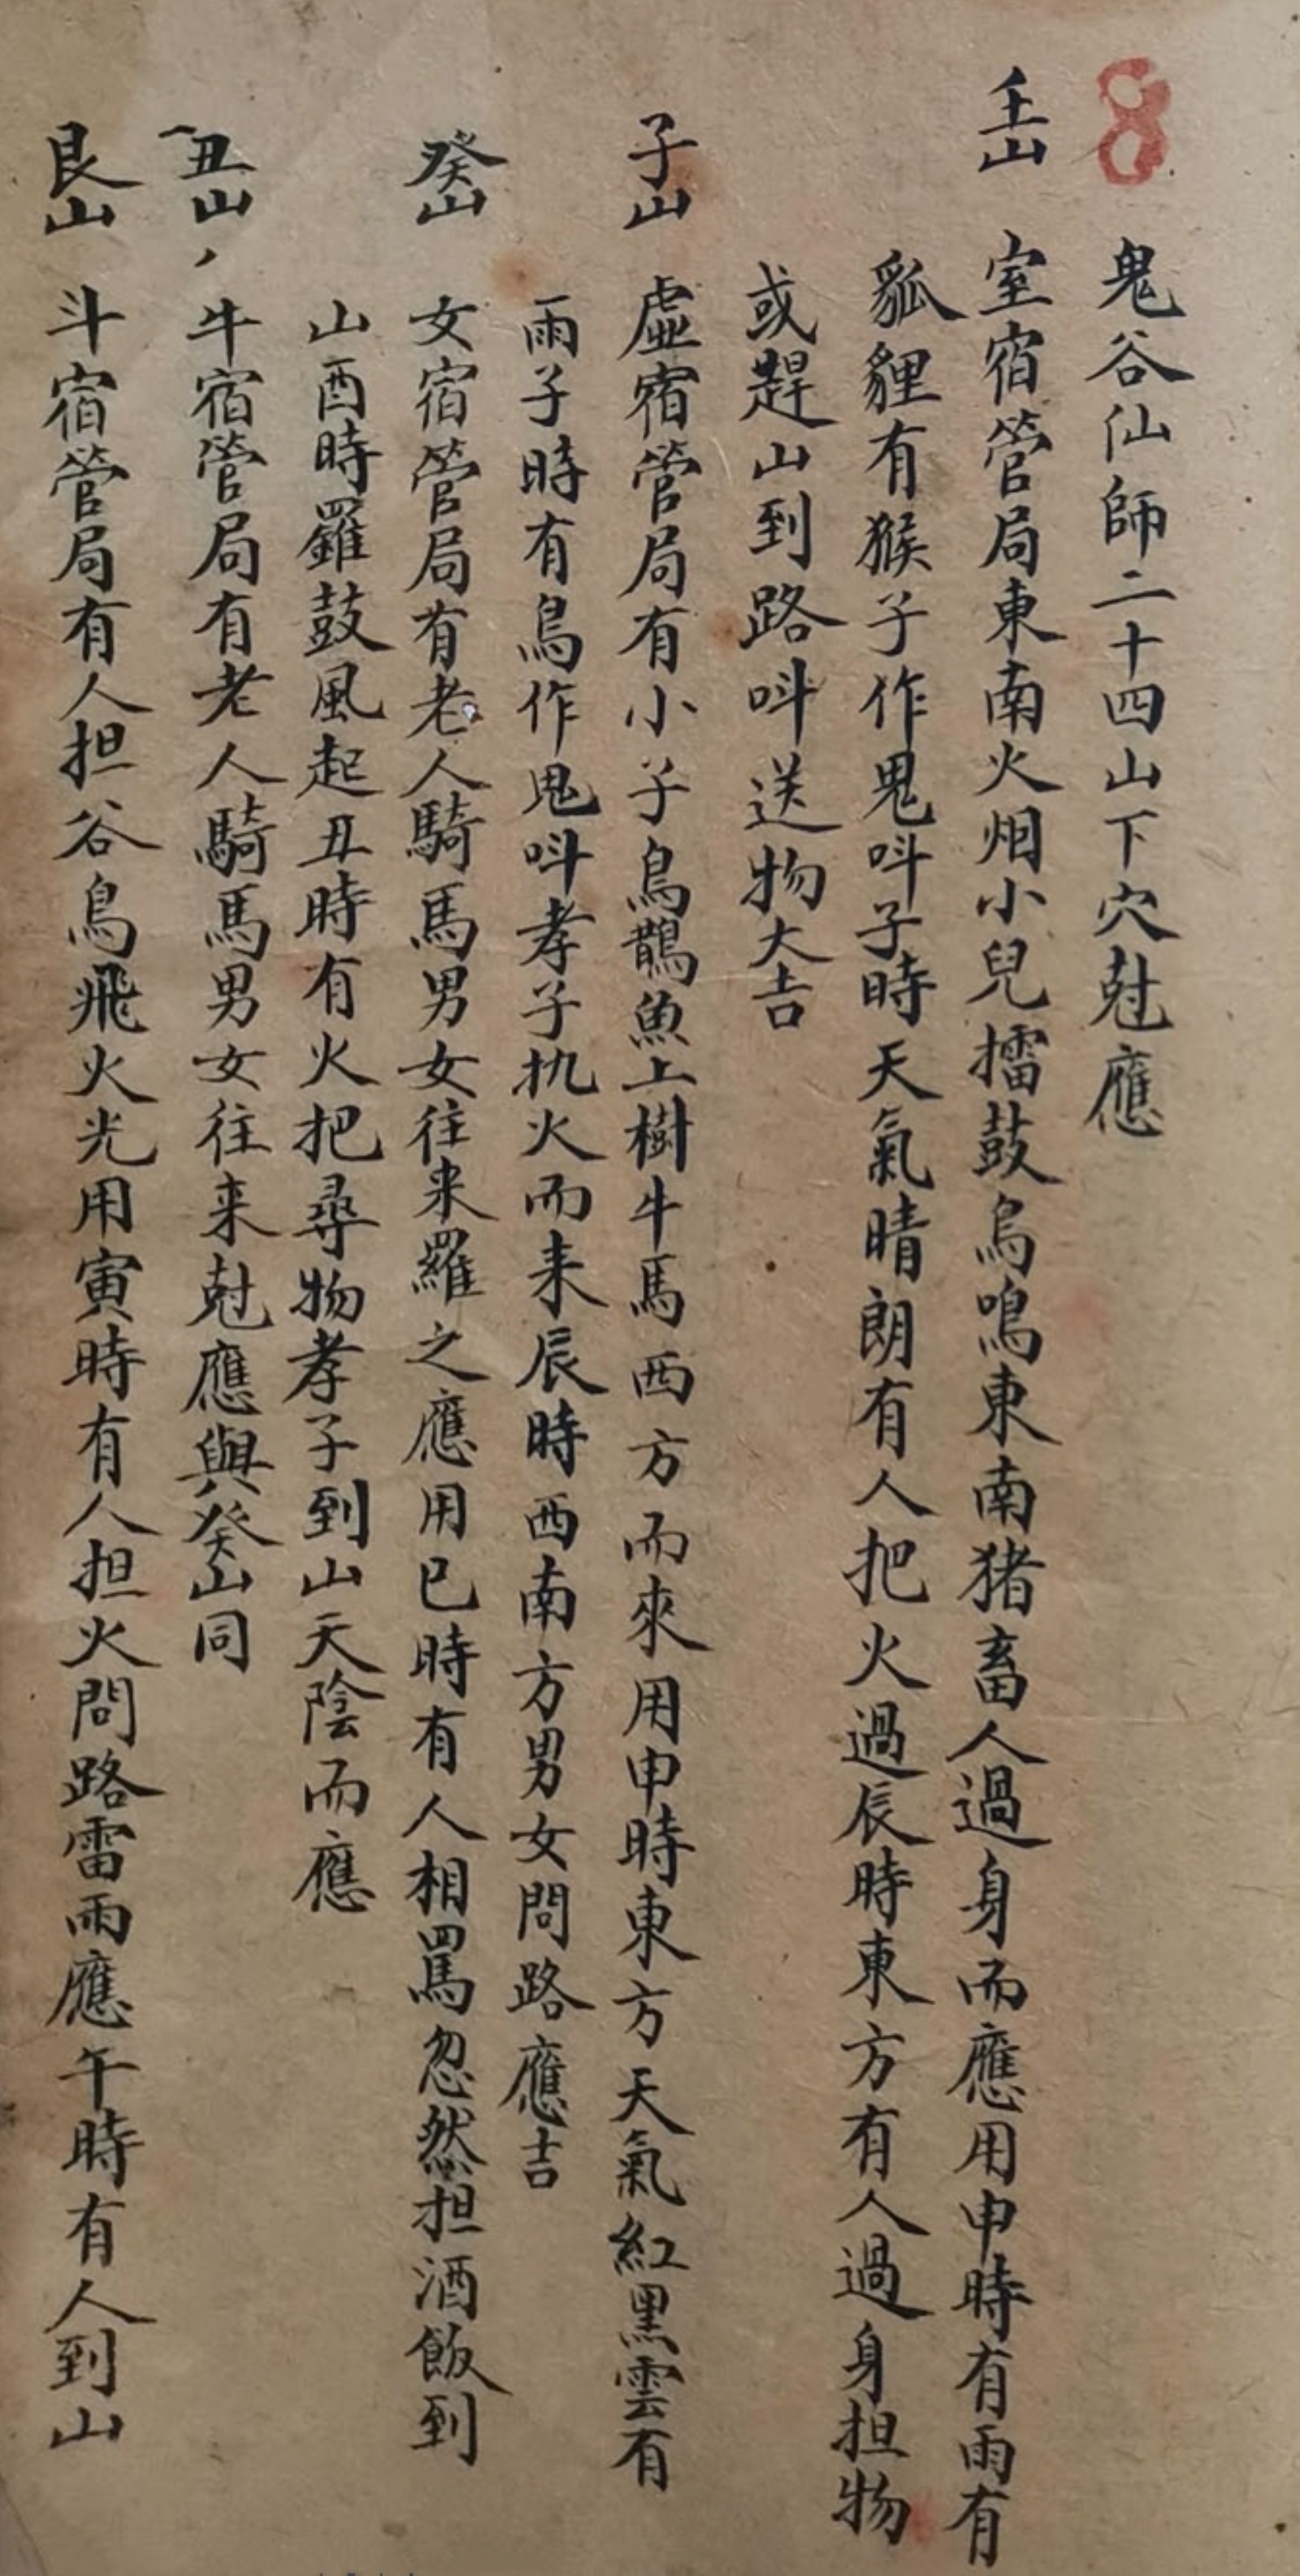 8
鬼谷仙師二十四山下穴尅應
壬山 室宿管局東南火烟小兒擂鼓烏鳴東南猪畜人過身而應用申時有雨有
狐貍有猴子作鬼呌子時天氣晴朗有人把火過辰時東方有人過身担物
或趕山到路呌送物大吉
子山 虛宿管局有小子鳥鵲魚上樹牛馬西方而來用申時東方天氣紅黑雲有
雨子時有鳥作鬼呌孝子执火而来辰時西南方男女問路應吉
癸山 女宿管局有老人騎馬男女往来羅之應用巳時有人相罵忽然担酒飯到
山酉時鑼鼓風起丑時有火把尋物孝子到山天陰而應
丑山 牛宿管局有老人騎馬男女往来尅應與癸山同
艮山 斗宿管局有人担谷鳥飛火光用寅時有人担火問路雷雨應午時有人到山